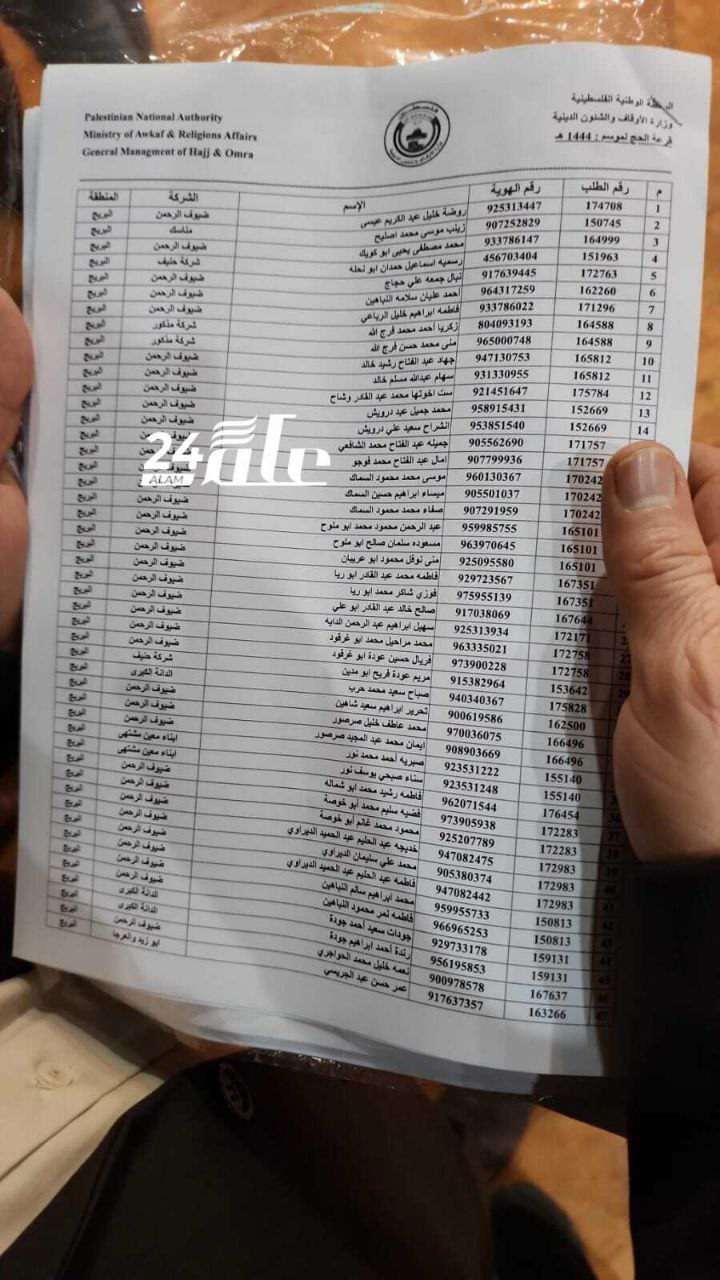 Palestinian National Authority
Ministry of Awkaf & Religions Affairs
General Managment of Hajj & Omra
الوطنية الفلسطينية
وزارة الأوقاف والشئون الدينية
قرعة الحج لموسم : 1444 هـ
م رقم الطلب رقم الهوية الإسم الشركة المنطقة
1 174708 925313447 روضة خليل عبد الكريم عيسى ضيوف الرحمن البريج
2 150745 907252829 زينب موسى محمد اصليح مناسك البريج
3 164999 933786147 محمد مصطفى يحيى ابو كويك ضيوف الرحمن البريج
4 151963 456703404 رسميه اسماعيل حمدان ابو نحله شركة حنيف البريج
5 172763 917639445 نبال جمعه علي حجاج ضيوف الرحمن البريج
6 162260 964317259 احمد عليان سلامه النباهين ضيوف الرحمن البريج
7 171296 933786022 فاطمه ابراهيم خليل الرباعي ضيوف الرحمن البريج
8 164588 804093193 زكريا أحمد محمد فرج الله شركة مذكور البريج
9 164588 965000748 منى محمد حسن فرج الله شركة مذكور البريج
10 165812 947130753 جهاد عبد الفتاح رشيد خالد ضيوف الرحمن البريج
11 165812 931330955 سهام عبدالله مسلم خالد ضيوف الرحمن البريج
12 175784 921451647 ست اخوتها محمد عبد القادر وشاح ضيوف الرحمن البريج
13 152669 958915431 محمد جميل عبد درويش ضيوف الرحمن البريج
14 152669 953851540 انشراح سعيد علي درويش البريج
171757 905562690 جميله عبد الفتاح محمد الشافعي البريج
171757 907799936 امال عبد الفتاح محمد فوجو البريج
170242 960130367 موسى محمد محمود السماك البريج
170242 905501037 ميساء ابراهيم حسين السماك ضيوف الرحمن البريج
170242 907291959 صفاء محمد محمود السماك ضيوف الرحمن البريج
165101 959985755 عبد الرحمن محمود محمد ابو ملوح ضيوف الرحمن البريج
165101 963970645 مسعوده سلمان صالح ابو ملوح ضيوف الرحمن البريج
165101 925095580 منى نوفل محمود ابو عريبان ضيوف الرحمن البريج
167351 929723567 فاطمه محمد عبد القادر أبو ريا ضيوف الرحمن البريج
167351 975955139 فوزي شاكر محمد ابو ريا ضيوف الرحمن البريج
167644 917038069 صالح خالد عبد القادر ابو علي ضيوف الرحمن البريج
172171 925313934 سهيل ابراهيم عبد الرحمن الدايه ضيوف الرحمن البريج
27 172758 963335021 محمد مراحيل محمد ابو غرقود ضيوف الرحمن البريج
28 172758 973900228 فريال حسين عودة ابو غرقود ضيوف الرحمن البريج
29 153642 915382964 مريم عودة فريح ابو مدين شركة حنيف البريج
175828 940340367 صباح سعيد محمد حرب الدانة الكبرى البريج
162500 900619586 تحرير ابراهيم سعيد شاهين ضيوف الرحمن البريج
166496 970036075 محمد عاطف خليل صرصور ضيوف الرحمن البريج
166496 908903669 ايمان محمد عبد المجيد صرصور ضيوف الرحمن البريج
155140 923531222 صبريه أحمد محمد نور ابناء معين مشتهى البريج
155140 923531248 سناء صبحي يوسف نور ابناء معين مشتهى البريج
36 176454 962071544 فاطمه رشيد محمد ابو شماله ضيوف الرحمن البريج
37 172283 973905938 فضيه سليم محمد ابو خوصة ضيوف الرحمن البريج
38 172283 925207789 محمود محمد غانم أبو خوصة ضيوف الرحمن البريج
39 172983 947082475 خديجه عبد الحليم عبد الحميد الديراوي ضيوف الرحمن البريج
40 172983 905380374 محمد علي سليمان الديراوي ضيوف الرحمن البريج
41 172983 947082442 فاطمه عبد الحليم عبد الحميد الديراوي ضيوف الرحمن البريج
42 150813 959955733 محمد ابراهيم سالم النباهين ضيوف الرحمن البريج
43 150813 966965253 فاطمه نمر محمود النباهين ضيوف الرحمن البريج
44 159131 929733178 جودات سعيد أحمد جودة الدانة الكبرى البريج
45 159131 956195853 رندة أحمد ابراهيم جودة الدانة الكبرى البريج
46 167637 900978578 نعمه خليل محمد الحواجري ضيوف الرحمن البريج
47 163266 917637357 عمر حسن عبد الجريسي ابو زيد والعرجا البريج
24 عالم
ALAM